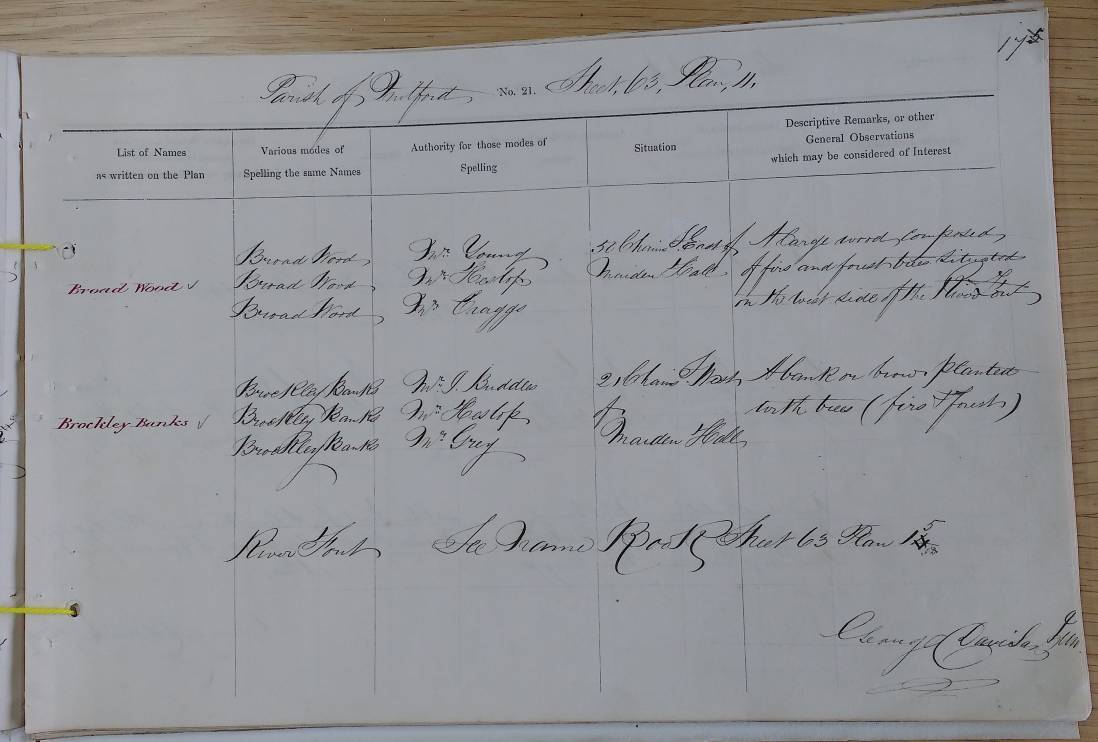 175
Parish of Mitford No. 21. Sheet, 63, Plan, 4.
List of Names
as written on the Plan
Various modes of
Spelling the same Names
Authority for those modes of
Spelling
Situation
Descriptive Remarks, or other
General Observations
which may be considered of Interest
Broad Wood
Broad Wood
Broad Wood
Broad Wood
Mr. Young
Mr. Heslop
Mr. Craggs
52 Chains S East of
Maiden Hall
A large wood composed
of firs and forest trees situated
on the west side of the River Font
Brockley Banks
Brockley Banks
Brockley Banks
Brockley Banks
Mr. J. Buddles
Mr. Heslop
Mr. Grey
21 Chains S West
of
Maiden Hall
A bank or brow planted
with trees (firs & forest)
River Font See Name Book Sheet 63 Plan 15
George Davison Jun.